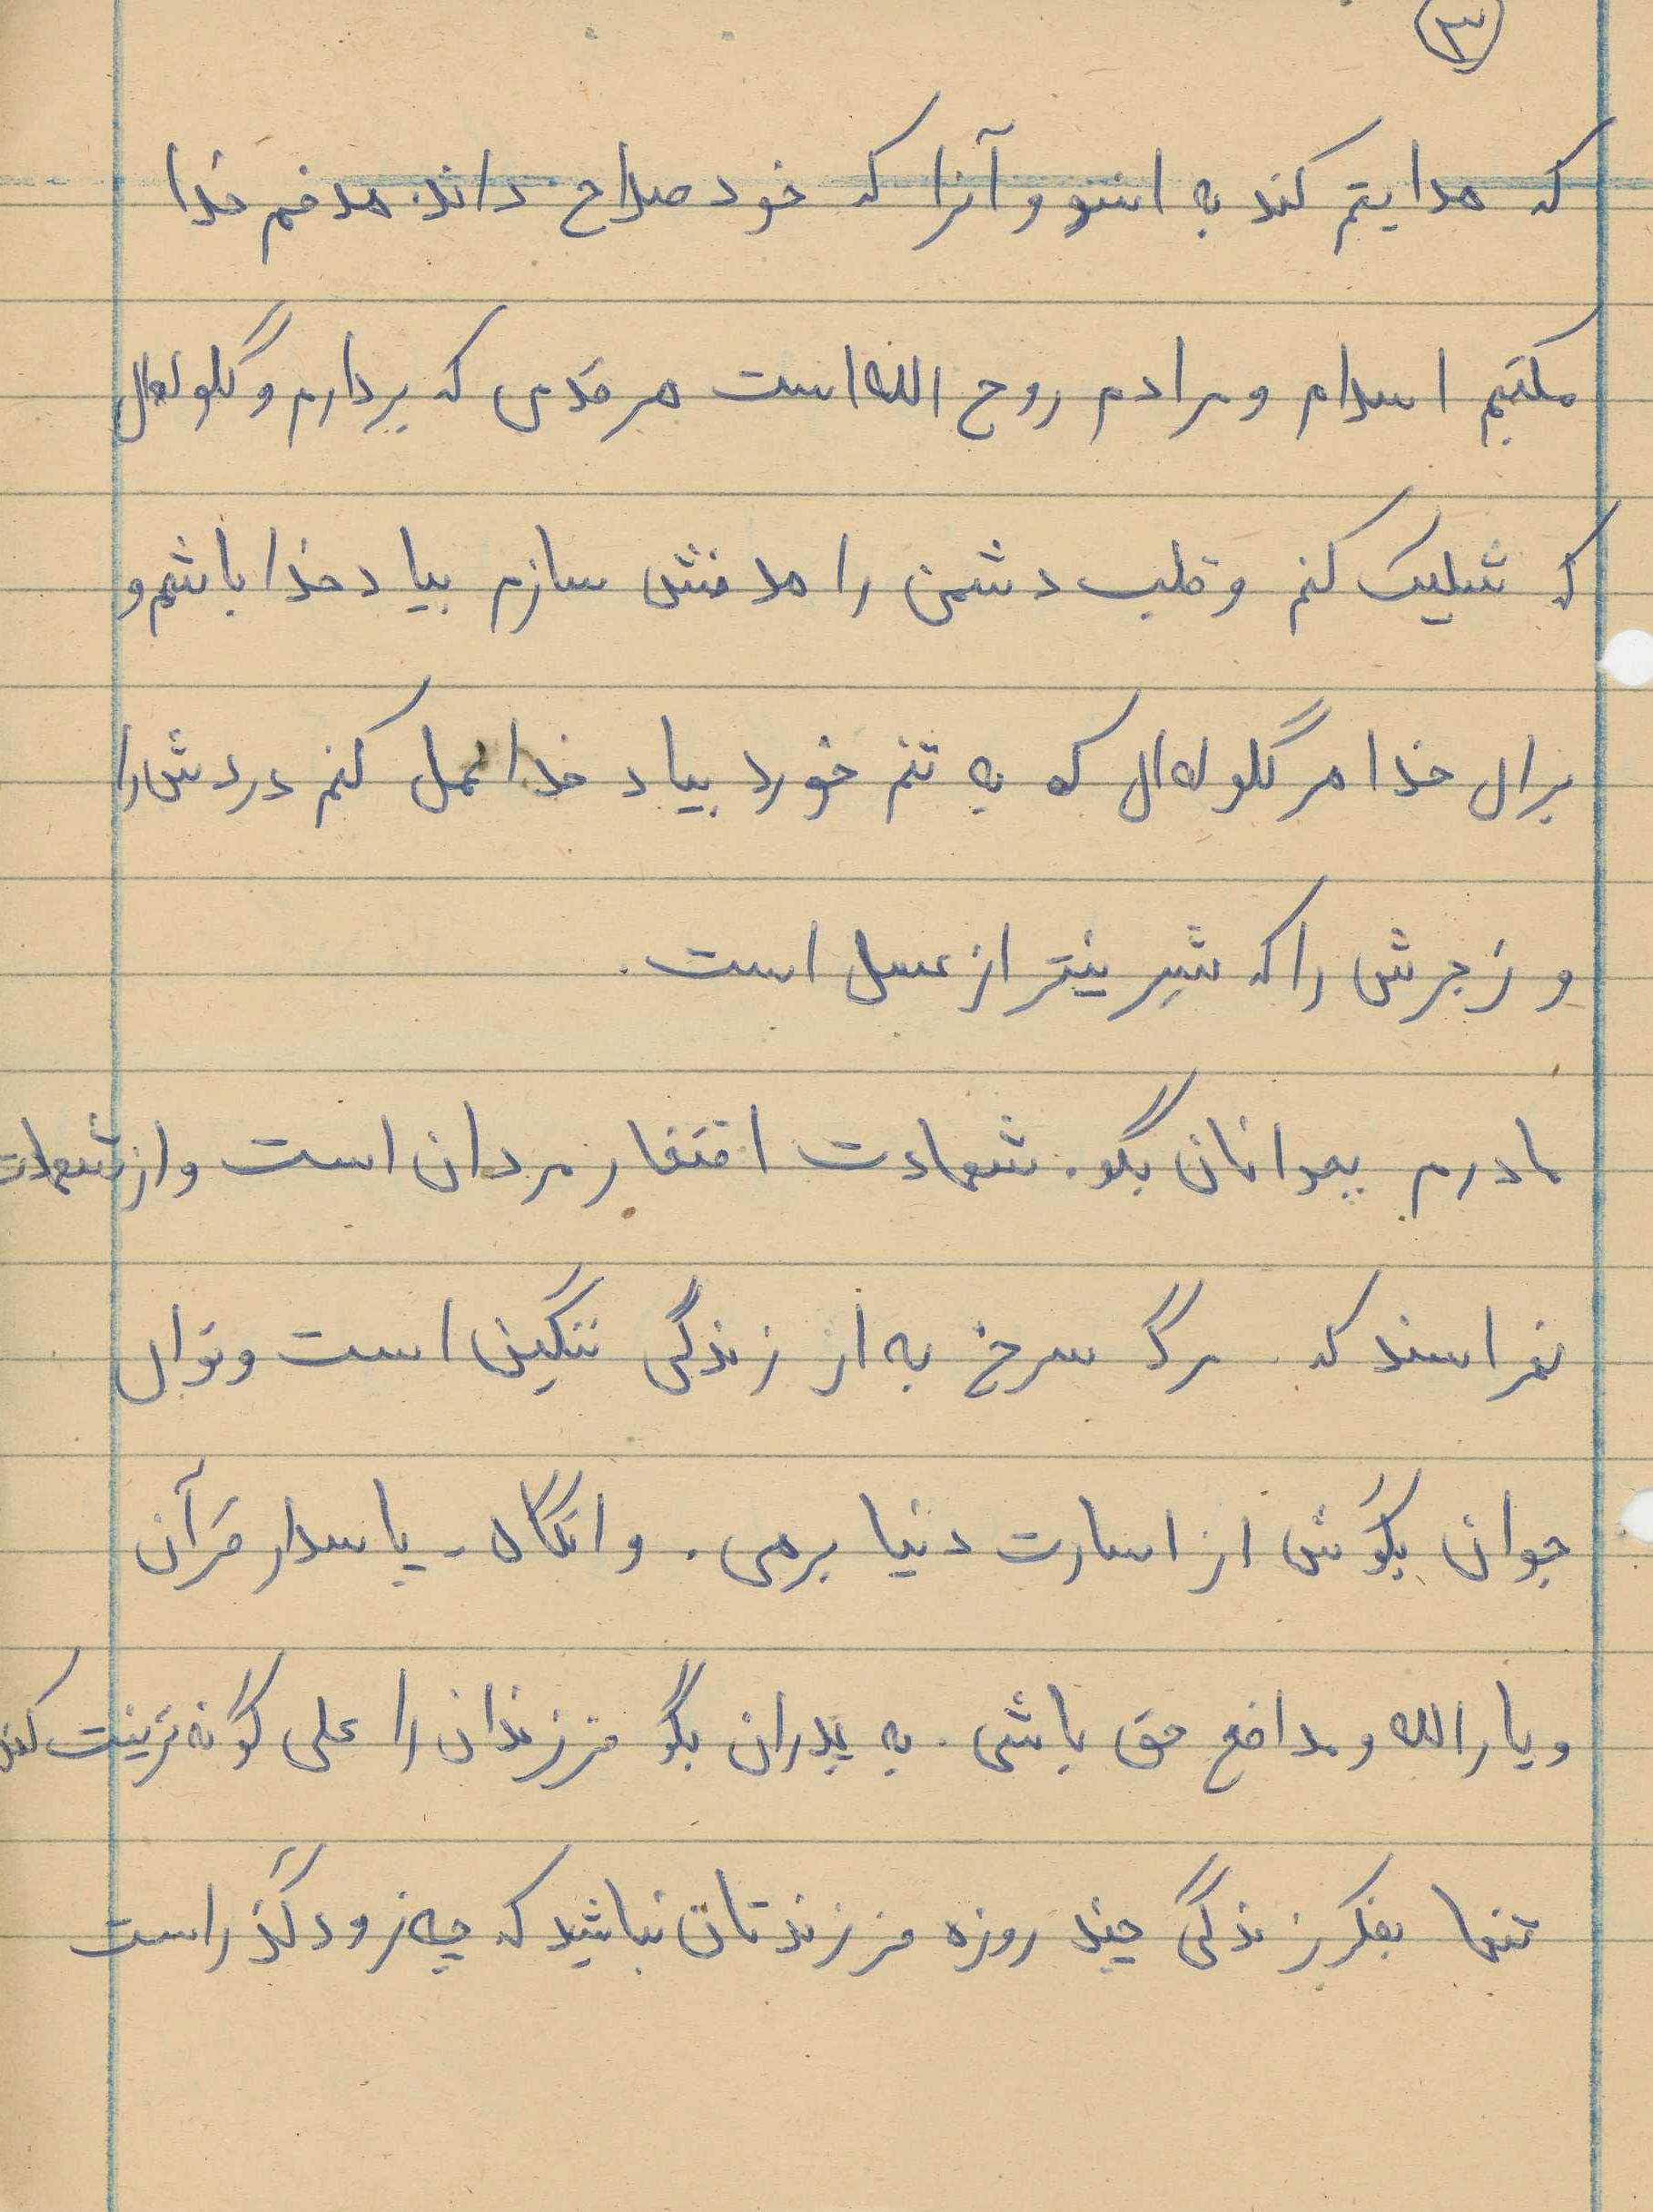 ۳
که هدایتم کند به اینسو و آنرا که خود صلاح داند. هدفم خدا
مکتبم اسلام و مرادم روح الله است هر قدمی که بردارم و گلوله‌ای
که شلیک کنم و قلب دشمن را هدفش سازم بیاد خدا باشم و
برای خدا هر گلوله‌ای که به تنم خورد بیاد خدا عمل کنم دردش را
و زجرش را که شیرینتر از عسل است.
مادرم بجوانان بگو. شهادت افتخار مردان است و از شهادت
نهراسند که مرگ سرخ به از زندگی ننگین است و توای
جوان بکوش از اسارت دنیا برهی. و انگاه - پاسدار قرآن
و یار الله و مدافع حق باشی. به پدران بگو فرزندان را علی گونه تربیت کنند
تنها بفکر زندگی چند روزه فرزندتان نباشید که چه زود گذر است